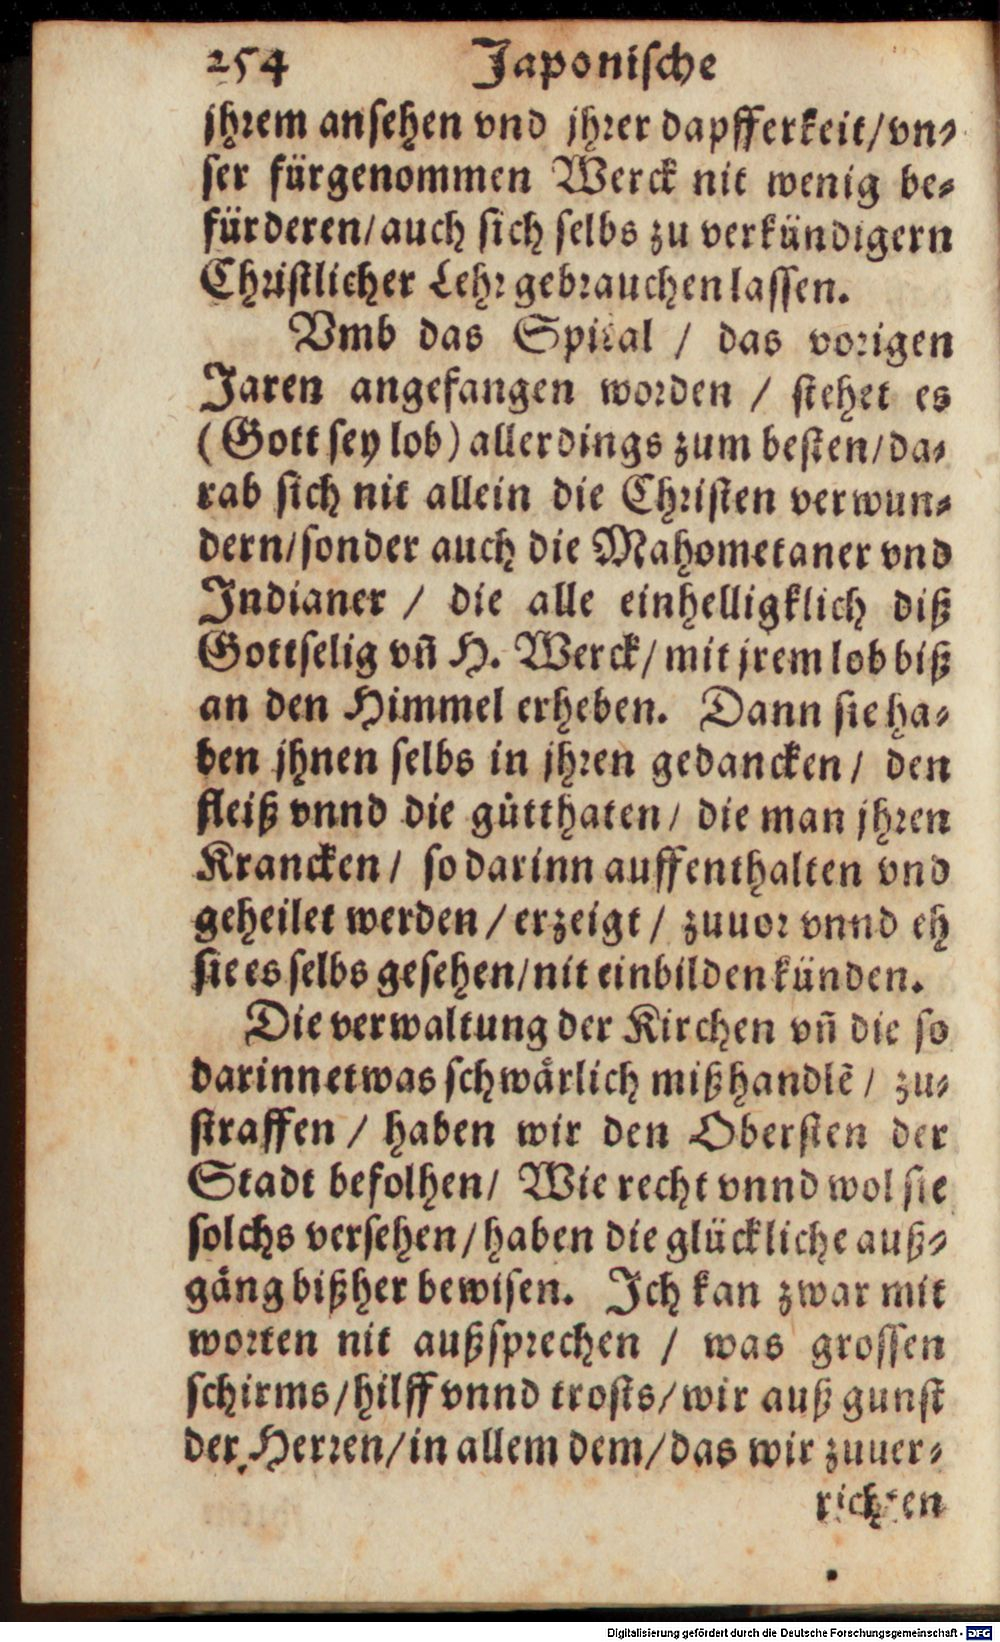 254 Japonische
jhrem ansehen vnd jhrer dapfferkeit/vn-
ser fürgenommen Werck nit wenig be-
fürderen/auch sich selbs zu verkündigern
Christlicher Lehr gebrauchen lassen.
Vmb das Spital / das vorigen
Jaren angefangen worden / stehet es
(Gott sey lob) allerdings zum besten/da-
rab sich nit allein die Christen verwun-
dern/sonder auch die Mahometaner vnd
Indianer / die alle einhelligklich diß
Gottselig vñ H. Werck/ mit jrem lob biß
an den Himmel erheben. Dann sie ha-
ben jhnen selbs in jhren gedancken/ den
fleiß vnnd die gůtthaten/ die man jhren
Krancken/ so darinn auffenthalten vnd
geheilet werden / erzeigt / zuuor vnnd eh
sie es selbs gesehen/nit einbilden künden.
Die verwaltung der Kirchen vñ die so
darinn etwas schwärlich mißhandlē / zu-
straffen / haben wir den Obersten der
Stadt befolhen/ Wie recht vnnd wol sie
solchs versehen/haben die glückliche auß-
gäng bißher bewisen. Ich kan zwar mit
worten nit außsprechen / was grossen
schirms/hilff vnnd trosts/wir auß gunst
der Herren/in allem dem/das wir zuuer-
richten
Digitalisierung gefördert durch die Deutsche Forschungsgemeinschaft - DFG